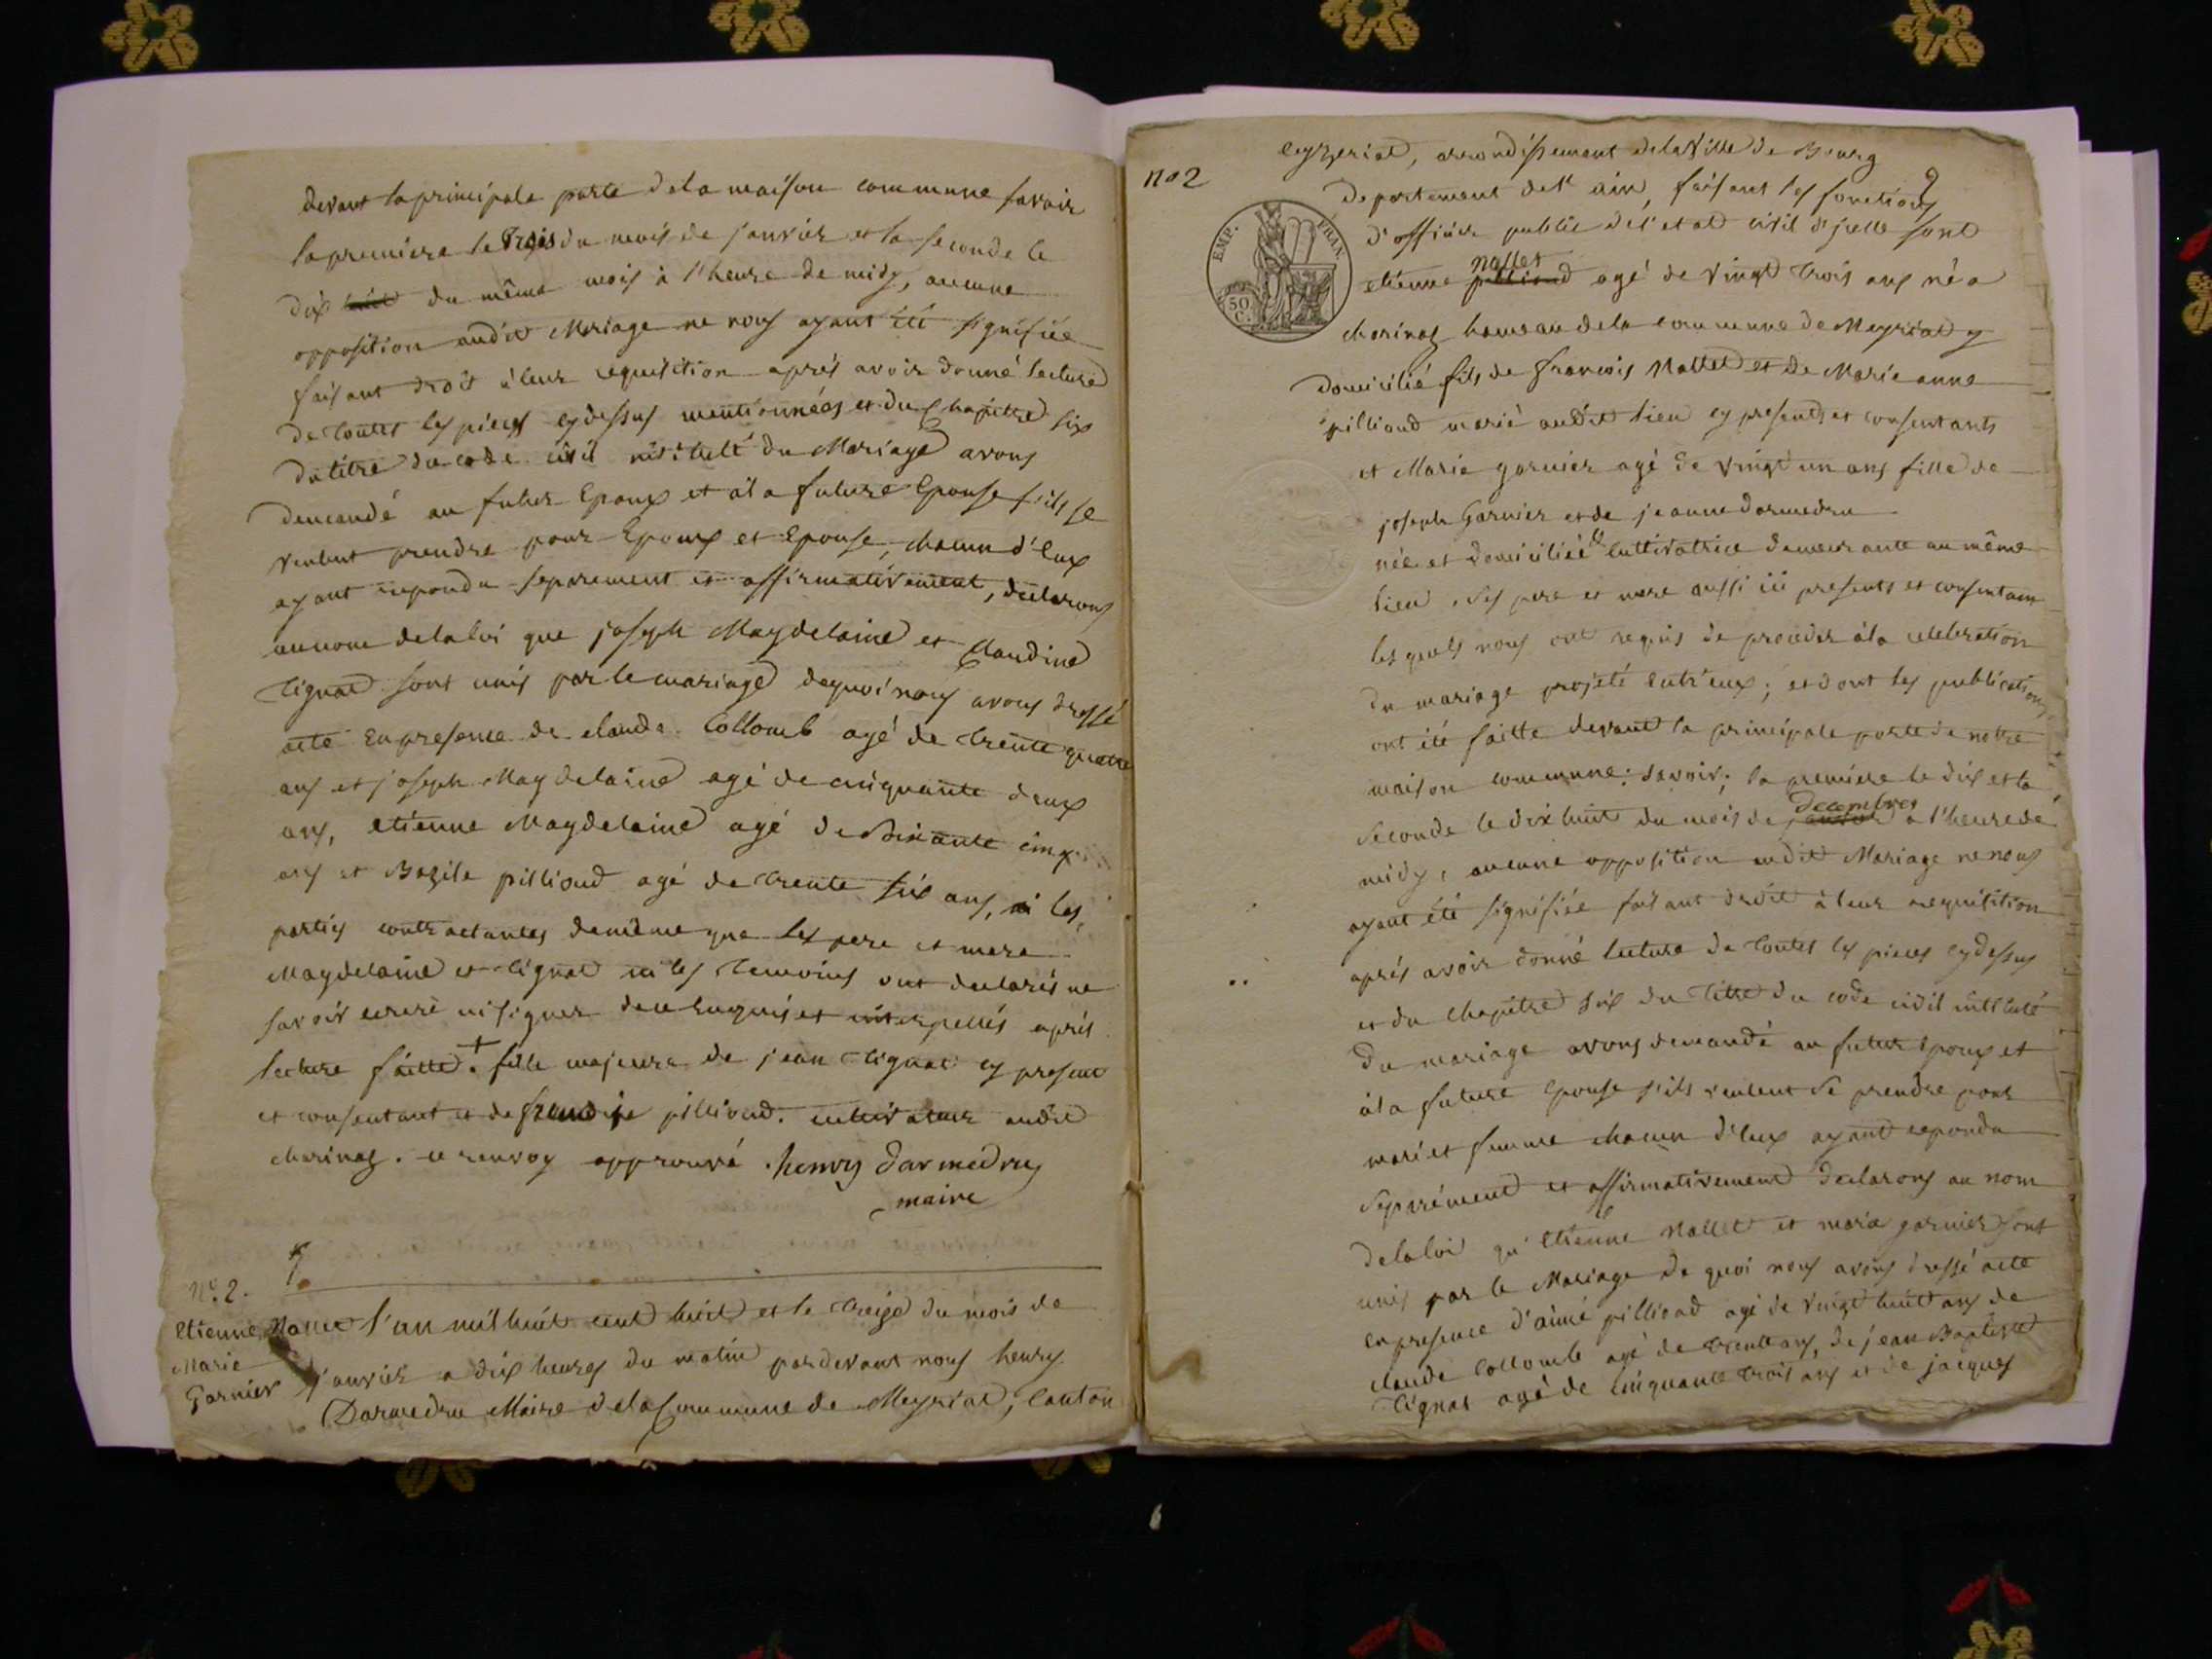 devant la principale porte de la maison commune savoir
la premiere le trois du mois de janvier et la seconde le
dix huit du même mois à l'heure de midy, aucune
opposition audit Mariage ne nous ayant été signifiée
faisant droit à leur requisition aprés avoir donné lecture
de toutes les pieces cydessus mentionnées et du chapitre six
du titre du code civil intitulé du Mariage avons
demandé au futur Epoux et à la future Epouse s'ils se
veulent prendre pour Epoux et Epouse, chacun d'eux
ayant repondu separement et affirmativement, declarons
au nom de la loi que joseph Magdelaine et Claudine
tignat sont unis par le mariage de quoi nous avons dressé
acte en presence de claude Collomb agé de trente quatre
ans et joseph Magdelaine agé de cinquante deux
ans, etienne Magdelaine agé de soixante cinq
ans et Bazile pillioud agé de trente six ans, ni les
parties contractantes de même que les pere et mere
Magdelaine et tignat ni les temoins ont declarés ne
savoir ecrire ni signer de ce enquis et interpellés aprés
lecture faitte. + fille majeure de jean tignat cy present
et consentant et de pillioud. cultivateur audit
charinas. ce renvoy approuvé. henry darmedru
maire
No. 2.
Etienne Nallet
Marie
Garnier
l'an mil huit cent huit et le treize du mois de
janvier a dix heures du matin pardevant nous henry
Darmedru Maire de la Commune de Meyriat, Canton
no 2
2
ceyzeriat, arrondissement de la Ville de Bourg
departement de l'ain, faisant les fonctions
d'officier public de l'etat civil d'jcelle sont
EMP. FRAN.
50 C.
nallet
etienne pillioud agé de vingt trois ans né a
charinas hameau de la commune de Meyriat y
domicilié fils de francois Nallet et de Marie anne
pillioud marié audit lieu cy presents et consentants
et Marie garnier agé de vingt un ans fille de
joseph Garnier et de jeanne darmedru
née et domiciliée cultivatrice demeurante au même
lieu, ses pere et mere aussi ici presents et consentans
lesquels nous ont requis de proceder à la celebration
du mariage projeté entr'eux; et dont les publications
ont été faitte devant la principale porte de notre
maison commune: savoir; la premiere le dix et la
decembres
seconde le dix huit du mois de janvier a l'heure de
midy, aucune opposition audit Mariage ne nous
ayant été signifiée faisant droit à leur requisition
aprés avoir donné lecture de toutes les pieces cydessus
et du Chapitre six du titre du code civil intitulé
du mariage avons demandé au futur epoux et
à la future Epouse s'ils veulent se prendre pour
mari et femme chacun d'eux ayant repondu
separément et affirmativement declarons au nom
de la loi qu'etienne Nallet et marie garnier sont
unis par le Mariage de quoi nous avons dressé acte
en presence d'aimé pillioud agé de vingt huit ans de
claude Collomb agé de trente ans, de jean Baptiste
Tignat agé de cinquante trois ans et de jacques